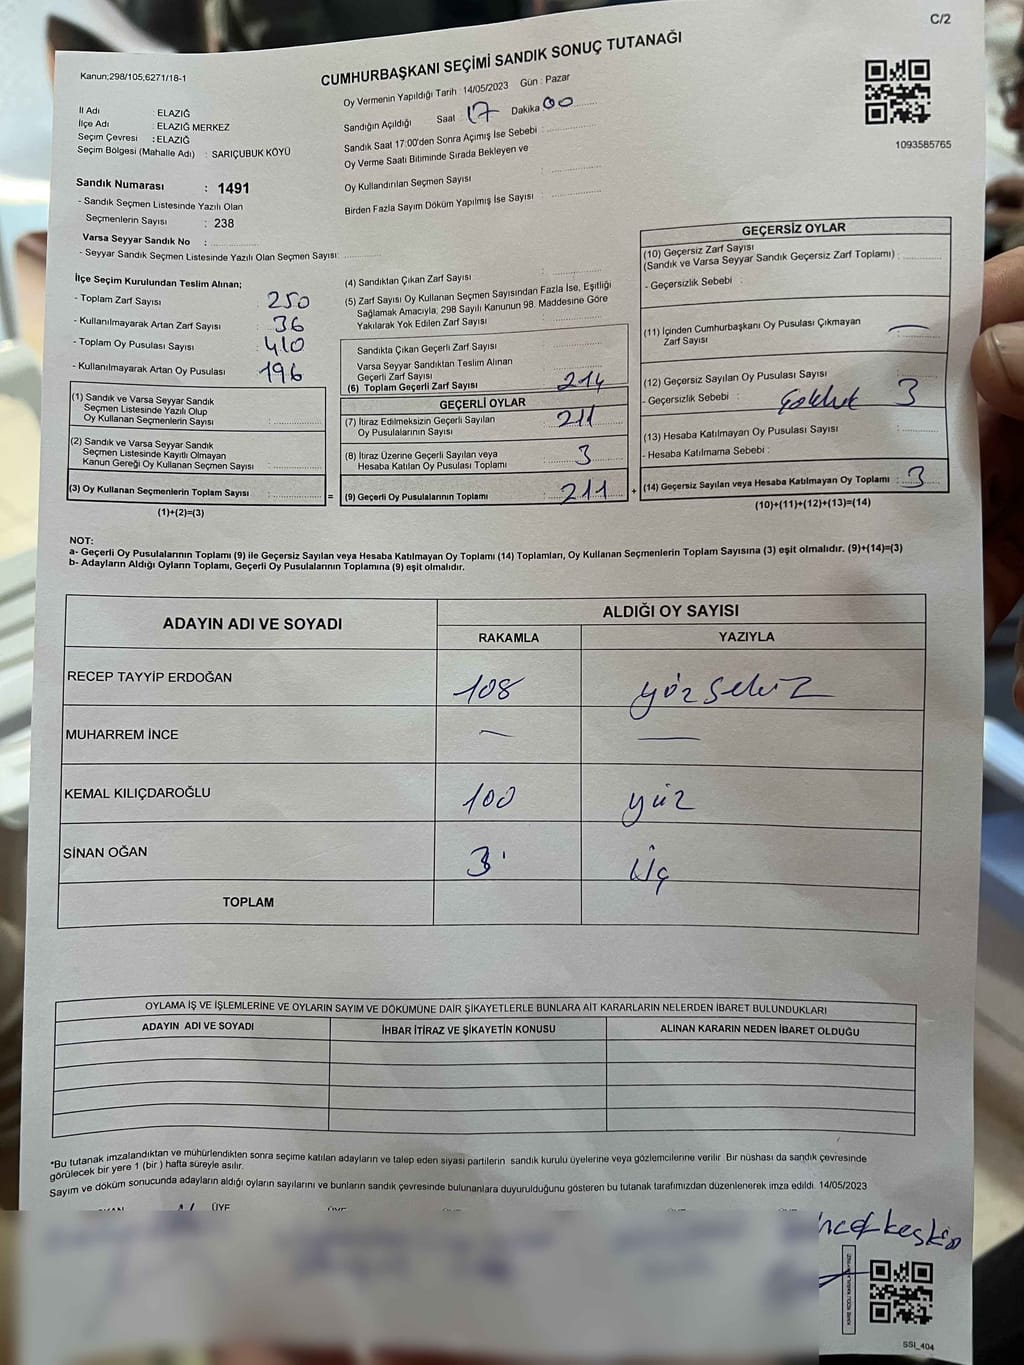 C/2
Kanun;298/105,6271/18-1
CUMHURBAŞKANI SEÇİMİ SANDIK SONUÇ TUTANAĞI
İl Adı : ELAZIĞ
İlçe Adı : ELAZIĞ MERKEZ
Seçim Çevresi : ELAZIĞ
Seçim Bölgesi (Mahalle Adı) : SARIÇUBUK KÖYÜ
Oy Vermenin Yapıldığı Tarih : 14/05/2023 Gün : Pazar
Sandığın Açıldığı Saat : 17 Dakika 00
Sandık Saat 17:00'den Sonra Açımış İse Sebebi :
Oy Verme Saati Bitiminde Sırada Bekleyen ve
Oy Kullandırılan Seçmen Sayısı :
Birden Fazla Sayım Döküm Yapılmış İse Sayısı :
1093585765
Sandık Numarası : 1491
- Sandık Seçmen Listesinde Yazılı Olan
Seçmenlerin Sayısı : 238
Varsa Seyyar Sandık No :
- Seyyar Sandık Seçmen Listesinde Yazılı Olan Seçmen Sayısı:
İlçe Seçim Kurulundan Teslim Alınan;
- Toplam Zarf Sayısı : 250
- Kullanılmayarak Artan Zarf Sayısı : 36
- Toplam Oy Pusulası Sayısı : 410
- Kullanılmayarak Artan Oy Pusulası : 196
(1) Sandık ve Varsa Seyyar Sandık
Seçmen Listesinde Yazılı Olup
Oy Kullanan Seçmenlerin Sayısı :
(2) Sandık ve Varsa Seyyar Sandık
Seçmen Listesinde Kayıtlı Olmayan
Kanun Gereği Oy Kullanan Seçmen Sayısı :
(3) Oy Kullanan Seçmenlerin Toplam Sayısı : =
(1)+(2)=(3)
(4) Sandıktan Çıkan Zarf Sayısı :
(5) Zarf Sayısı Oy Kullanan Seçmen Sayısından Fazla İse, Eşitliği
Sağlamak Amacıyla; 298 Sayılı Kanunun 98. Maddesine Göre
Yakılarak Yok Edilen Zarf Sayısı :
Sandıkta Çıkan Geçerli Zarf Sayısı :
Varsa Seyyar Sandıktan Teslim Alınan
Geçerli Zarf Sayısı :
(6) Toplam Geçerli Zarf Sayısı : 214
GEÇERLİ OYLAR
(7) İtiraz Edilmeksizin Geçerli Sayılan
Oy Pusulalarının Sayısı : 211
(8) İtiraz Üzerine Geçerli Sayılan veya
Hesaba Katılan Oy Pusulası Toplamı : 3
(9) Geçerli Oy Pusulalarının Toplamı : 211 +
GEÇERSİZ OYLAR
(10) Geçersiz Zarf Sayısı
(Sandık ve Varsa Seyyar Sandık Geçersiz Zarf Toplamı) :
- Geçersizlik Sebebi :
(11) İçinden Cumhurbaşkanı Oy Pusulası Çıkmayan
Zarf Sayısı : —
(12) Geçersiz Sayılan Oy Pusulası Sayısı :
- Geçersizlik Sebebi : 3
(13) Hesaba Katılmayan Oy Pusulası Sayısı :
- Hesaba Katılmama Sebebi :
(14) Geçersiz Sayılan veya Hesaba Katılmayan Oy Toplamı : 3
(10)+(11)+(12)+(13)=(14)
NOT:
a- Geçerli Oy Pusulalarının Toplamı (9) ile Geçersiz Sayılan veya Hesaba Katılmayan Oy Toplamı (14) Toplamları, Oy Kullanan Seçmenlerin Toplam Sayısına (3) eşit olmalıdır. (9)+(14)=(3)
b- Adayların Aldığı Oyların Toplamı, Geçerli Oy Pusulalarının Toplamına (9) eşit olmalıdır.
ADAYIN ADI VE SOYADI
ALDIĞI OY SAYISI
RAKAMLA YAZIYLA
RECEP TAYYİP ERDOĞAN 108 yüzsekiz
MUHARREM İNCE — —
KEMAL KILIÇDAROĞLU 100 yüz
SİNAN OĞAN 3 üç
TOPLAM
OYLAMA İŞ VE İŞLEMLERİNE VE OYLARIN SAYIM VE DÖKÜMÜNE DAİR ŞİKAYETLERLE BUNLARA AİT KARARLARIN NELERDEN İBARET BULUNDUKLARI
ADAYIN ADI VE SOYADI İHBAR İTİRAZ VE ŞİKAYETİN KONUSU ALINAN KARARIN NEDEN İBARET OLDUĞU
*Bu tutanak imzalandıktan ve mühürlendikten sonra seçime katılan adayların ve talep eden siyasi partilerin sandık kurulu üyelerine veya gözlemcilerine verilir. Bir nüshası da sandık çevresinde
görülecek bir yere 1 (bir ) hafta süreyle asılır.
Sayım ve döküm sonucunda adayların aldığı oyların sayılarını ve bunların sandık çevresinde bulunanlara duyurulduğunu gösteren bu tutanak tarafımızdan düzenlenerek imza edildi. 14/05/2023
ÜYE
SSI_404